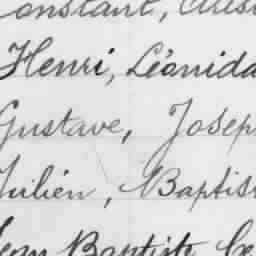 Constant,
Henri, Léonida
Gustave, Josep
Julien, Baptis
Jean Baptiste